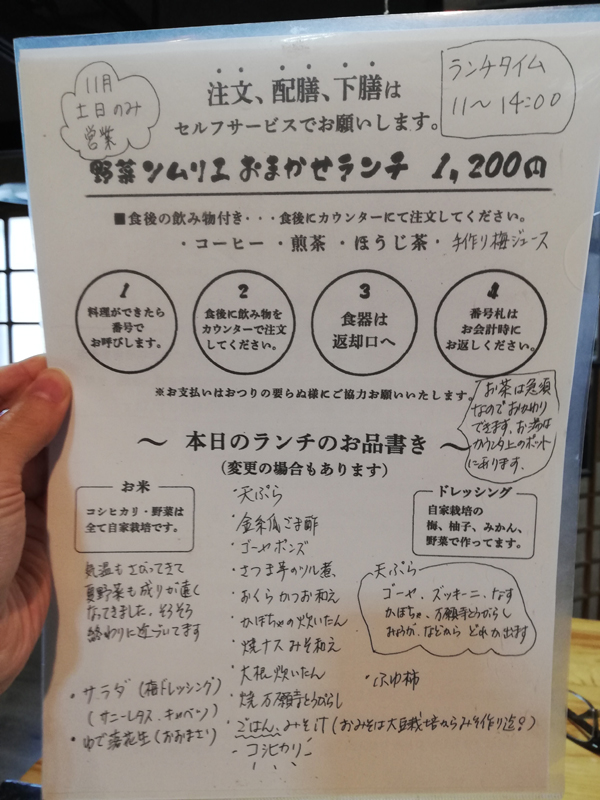 11月
土日のみ
営業
注文、配膳、下膳は
セルフサービスでお願いします。
ランチタイム
11〜14:00
野菜ソムリエおまかせランチ 1,200円
■食後の飲み物付き・・・食後にカウンターにて注文してください。
・コーヒー・煎茶・ほうじ茶・手作り梅ジュース
1
料理ができたら
番号で
お呼びします。
2
食後に飲み物を
カウンターで注文
してください。
3
食器は
返却口へ
4
番号札は
お会計時に
お返しください。
※お支払いはおつりの要らぬ様にご協力お願いいたします。
お茶は急須
なのでおかわり
できます。お湯は
カウンタ上のポット
にあります。
〜 本日のランチのお品書き 〜
(変更の場合もあります)
お米
コシヒカリ・野菜は
全て自家栽培です。
気温もさがってきて
夏野菜も成りが遅く
なってきました。そろそろ
終わりに近づいてます
・サラダ(梅ドレッシング)
(サニーレタス、キャベツ)
・ゆで落花生(おおまさり)
・天ぷら
・金糸瓜ごま酢
・ゴーヤポンズ
・さつま芋のツル煮
・おくらかつお和え
・かぼちゃの炊いたん
・焼ナスみそ和え
・大根炊いたん
・焼万願寺とうがらし
・ごはん、みそ汁(おみそは大豆栽培からみそ作り迄♪)
コシヒカリ
ドレッシング
自家栽培の
梅、柚子、みかん、
野菜で作ってます。
天ぷら
ゴーヤ、ズッキーニ、なす
かぼちゃ、万願寺とうがらし
みょうが、などから どれか出ます
・ふゆ柿